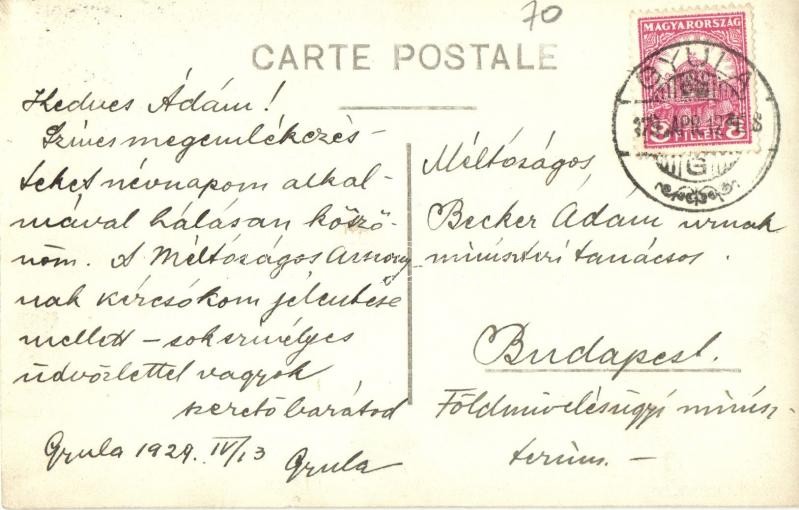 70
CARTE POSTALE
MAGYARORSZÁG
GYULA
APR. 13
G
Kedves Ádám!
Szíves megemlékezés-
teket névnapom alkal-
mával hálásan köszö-
nöm. A Méltóságos Asszony
nak kézcsókom jelentése
mellett – sok személyes
üdvözlettel vagyok
szerető barátod
Gyula 1929. IV/13 Gyula
Méltóságos,
Becker Ádám urnak
miniszteri tanácsos.
Budapest.
Földművelésügyi minisz-
terium. –